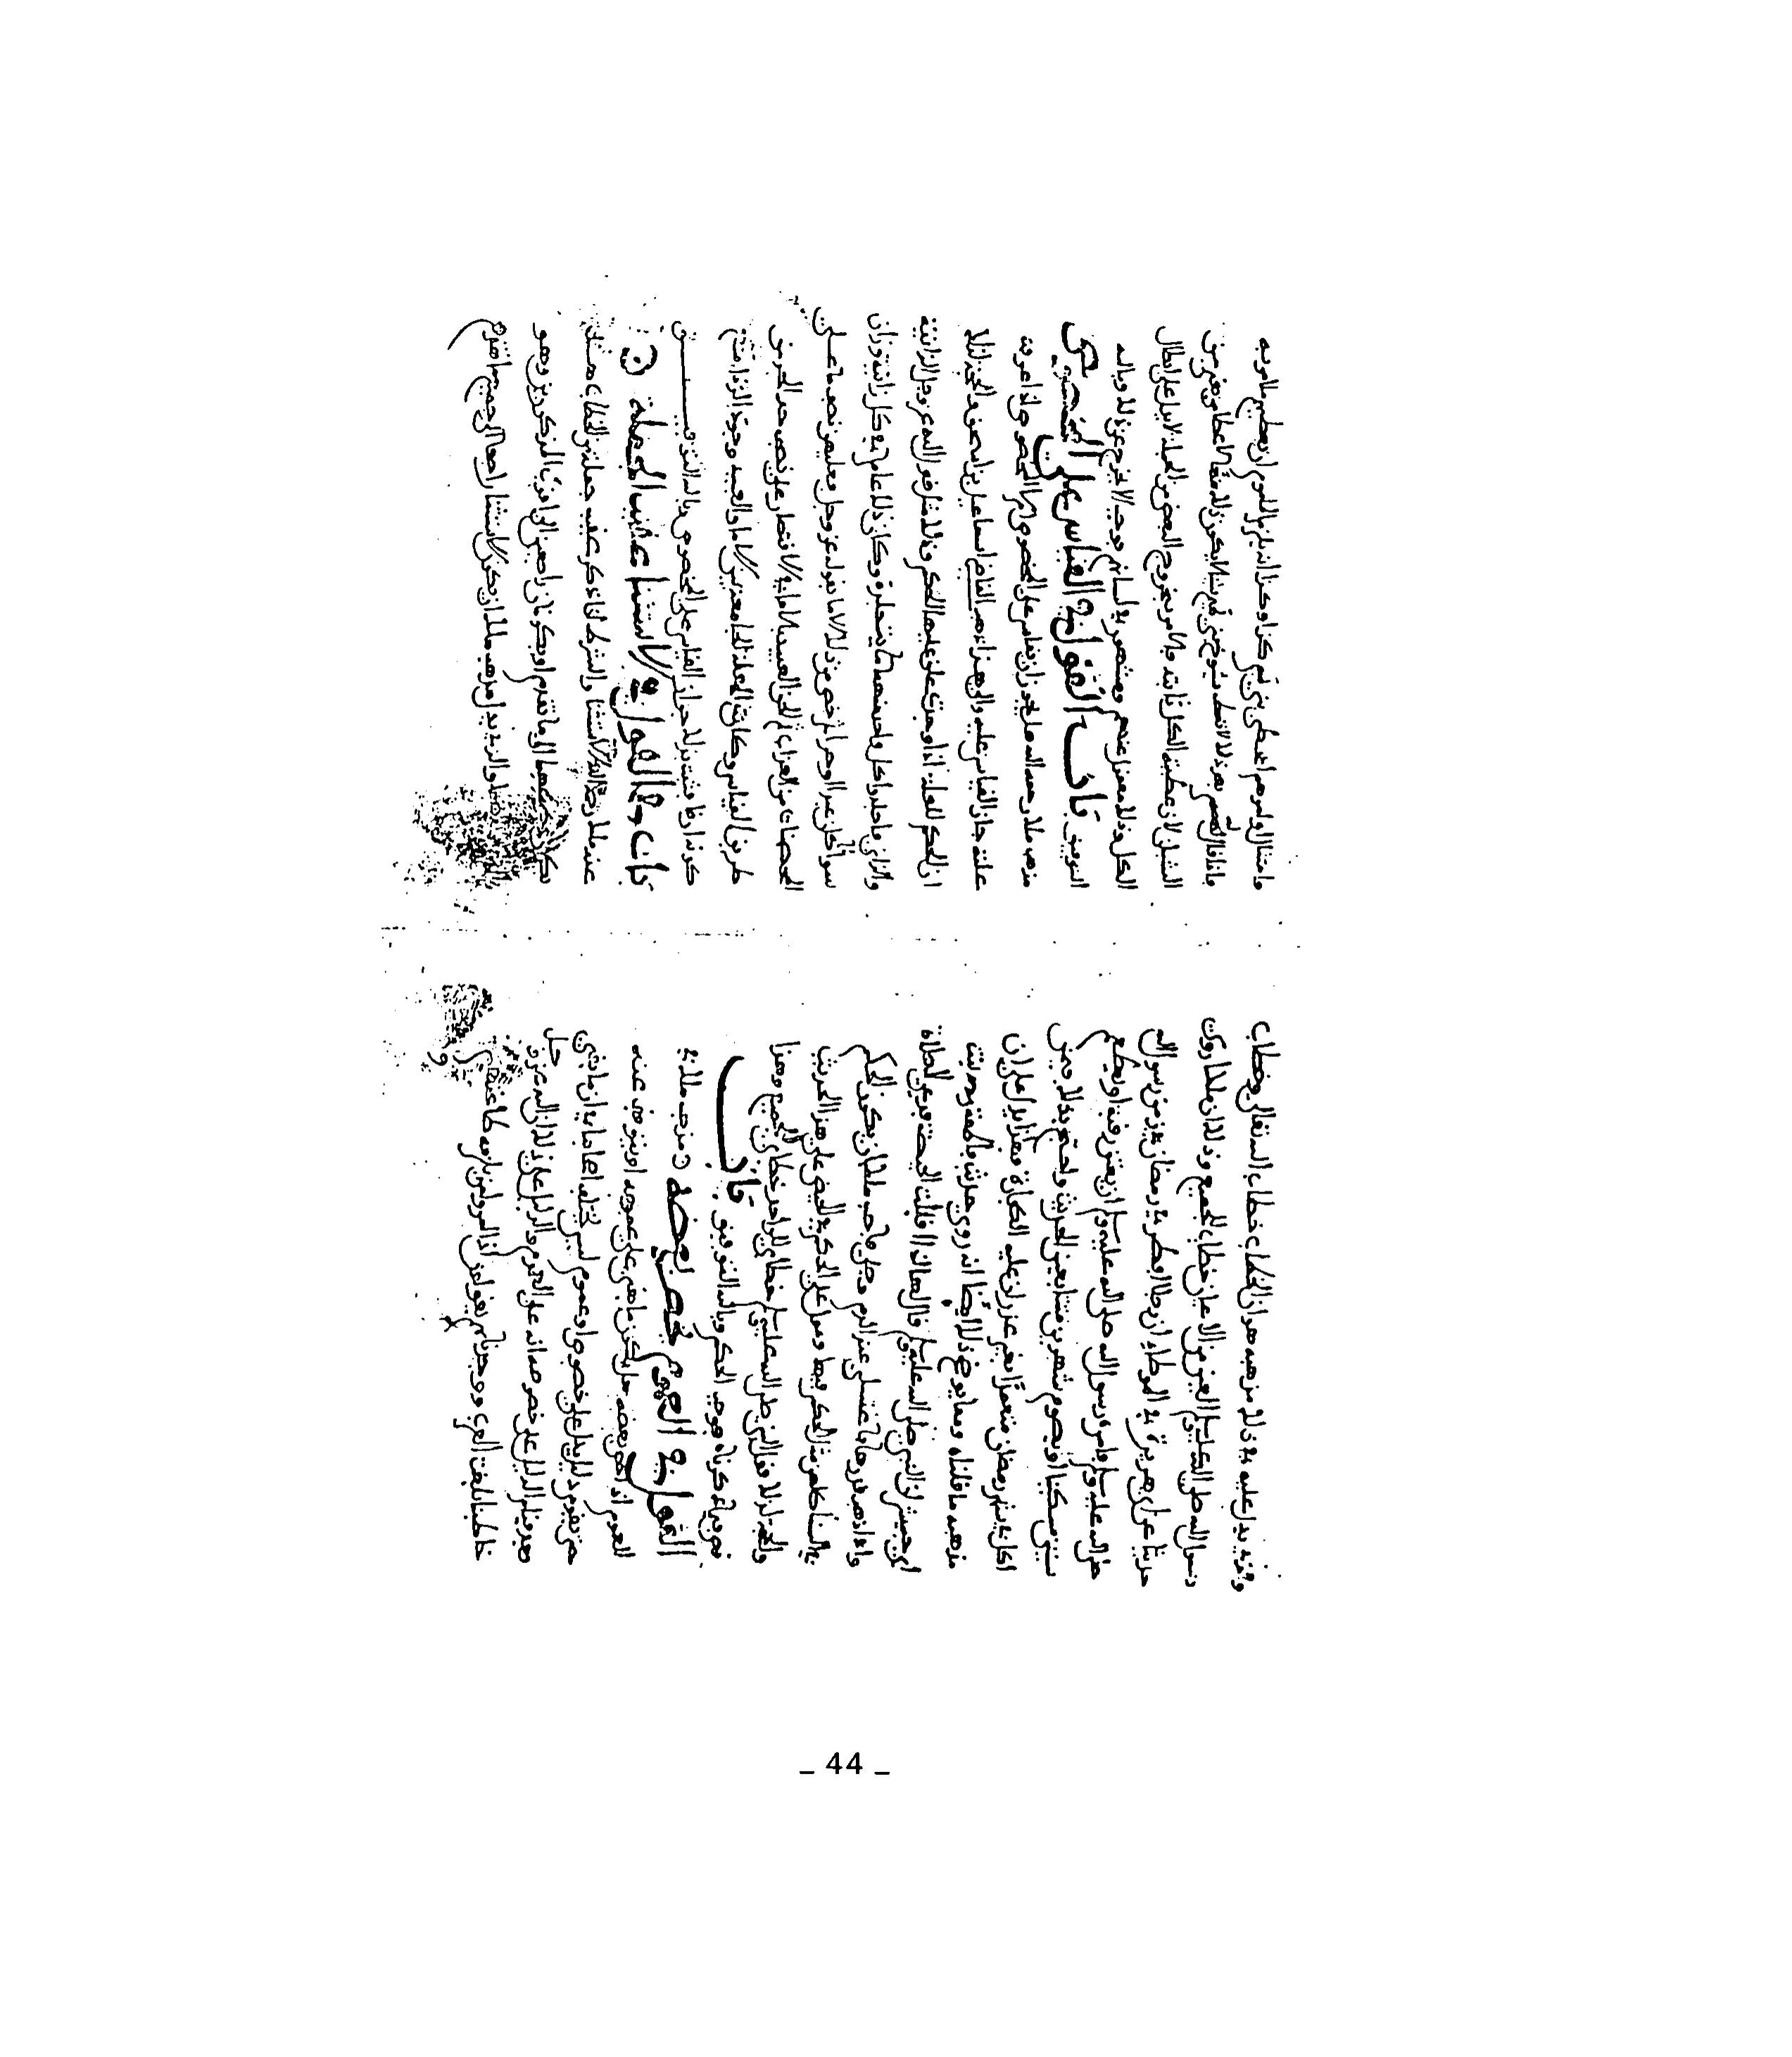 وقربه يدل عليه في ذلك مذهبه هو ان الخطاب خطاب الله تعالى وخطاب
رسول الله صلى الله عليه وسلم العين من الاعيان خطاب للجميع وذلك ان مالكا روى
حديثا عن ابي هريرة في الموطا في ان رجلا افطر في رمضان في زمن رسول الله
صلى الله عليه وسلم فامره رسول الله صلى الله عليه وسلم ان يعتق رقبة او يطعم
ستين مسكينا او يصوم شهرين متتابعين الحديث واحتج بذلك فيمن
اكل في شهر رمضان متعمدا بغير عذر ان عليه الكفارة فهذا يدل على ان
مذهبه ما قلناه ومما يوضح ذلك ايضا انه روى حديث فاطمة بنت
ابي حبيش ان النبي صلى الله عليه وسلم قال لها اذا اقبلت الحيضة فدعي الصلاة
واذا ذهب قدرها فاغتسلي عنك الدم وصلي فاوجب مالك ان يكون الحكم
في النساء كلهن هذا الحكم فيها وعول على الحكم في الحيض على هذا الحديث
والحجة لذلك قول النبي صلى الله عليه وسلم خطابي للواحد خطابي للجميع وهذا
نص فيما ذكرناه فوجب الحكم وبالله التوفيق باب
القول في العموم يخص بعضه ومذهب مالك في
العموم اذا خص بعضه هل يكون ما بقي على عمومه او يتوقف عنه
حتى يقوم دليل على خصوص او عموم ليس يختلف اصحابنا في ان ما بقي
بعد قيام الدليل على خصوصه انه على العموم والدليل على ذلك ان الله عز وجل
خاطبنا بلغة العرب ووجدناهم يقولون اذا
اعط بني تميم كذا وكذا انه يلزم المامور ان يعطيهم ما امر به
فاذا قال لهم بعد ذلك لا تعط شيوخ بني تميم شيئا لم يكن ذلك من بقي من
الشبان لان عطية الكل ثابتة والامر بخروج البعض من الجملة لا يدل على ابطال
الكل وذلك عندهم ومشهور في لسانهم فوجب عن ذلك وبالله
التوفيق باب القول في القياس على المخصوص
مذهب مالك رحمه الله هل يجوز ان يقاس على المخصوص ام لا المخصوص اذا عرفت
علته جاز القياس عليه والى هذا ذهب القاضي اسماعيل بن اسحق والحجة لذلك
ان الحكم للعلة اذا وجدت علق عليها الحكم وذلك مثل قول الله عز وجل الزانية
والزاني فاجلدوا كل واحد منهما مائة جلدة وكان ذلك عاما في كل زانية وزان
سواء كان عبدا او حرا ثم خص من ذلك الاماء بقوله عز وجل فعليهن نصف ما على
المحصنات من العذاب ثم الحق العبيد بالاماء في الاقتصار على نصف حد الحر من
طريق القياس وكانت العلة الجامعة بين الاماء والعبيد وجود الزنا
كونهم ارقاء فثبت بذلك جواز القياس على المخصوص وبالله التوفيق
باب القول في الاستثناء عقيب الجملة
عند مالك رحمه الله الاستثناء والشرط اذا ذكر عقيب جملة من الخطاب هل
يكون جميعها او ما تقدم او يكون راجعا الى اقرب المذكورين وهو
والذي يدل عليه مذهب مالك ان يكون الاستثناء راجعا الى جميع ما تقدم
– 44 –